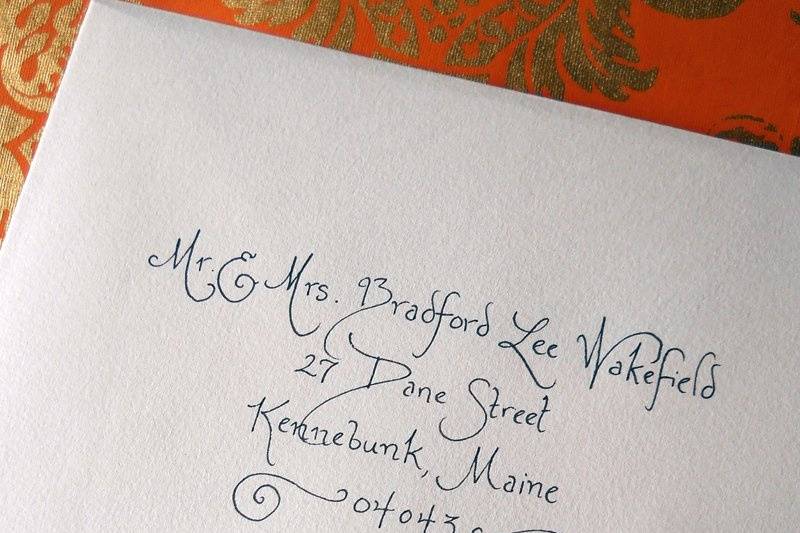 Mr. & Mrs. Bradford Lee Wakefield
27 Dane Street
Kennebunk, Maine
04043